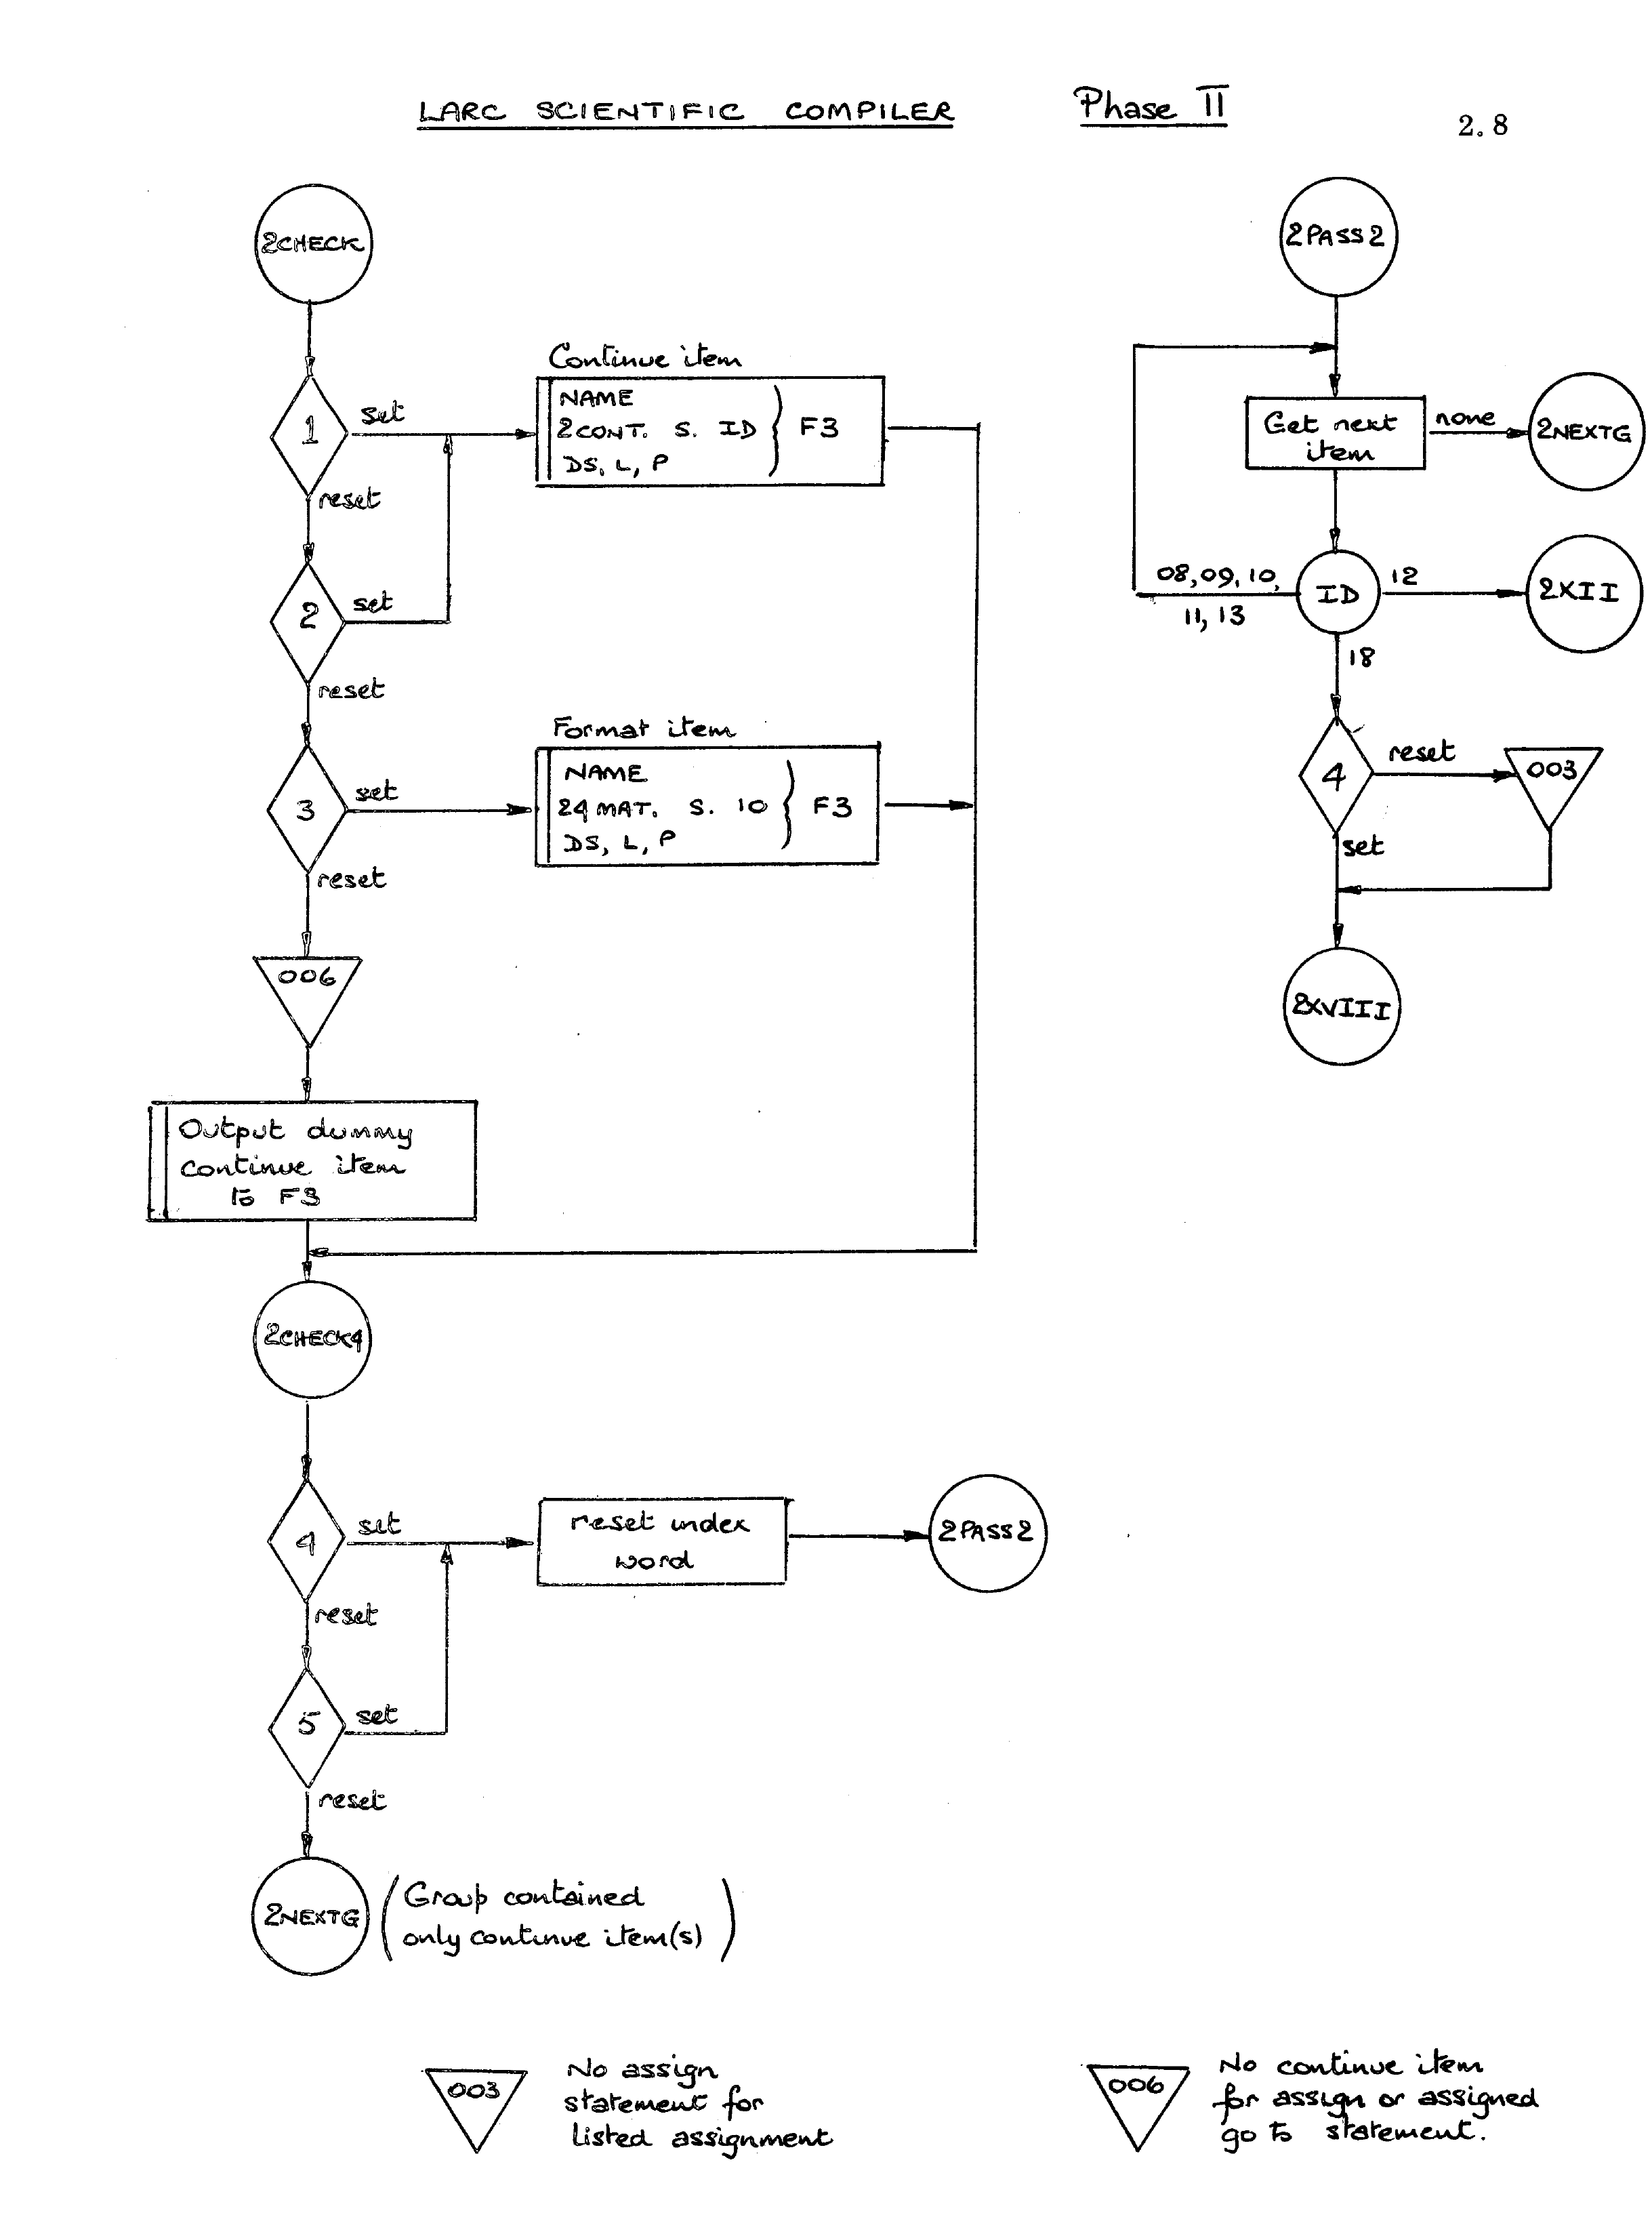 LARC SCIENTIFIC COMPILER Phase II
2.8
2CHECK
1
set
reset
Continue item
NAME
2CONT. S. ID } F3
DS, L, P
2
set
reset
3
set
reset
Format item
NAME
24MAT. S. 10 } F3
DS, L, P
006
Output dummy
continue item
to F3
2CHECK4
4
set
reset
reset index
word
2PASS2
5
set
reset
2NEXTG
(Group contained
only continue item(s))
2PASS2
Get next
item
none
2NEXTG
08, 09, 10,
11, 13
ID
12
2XII
18
4
reset
003
set
2XVIII
003
No assign
statement for
listed assignment
006
No continue item
for assign or assigned
go to statement.